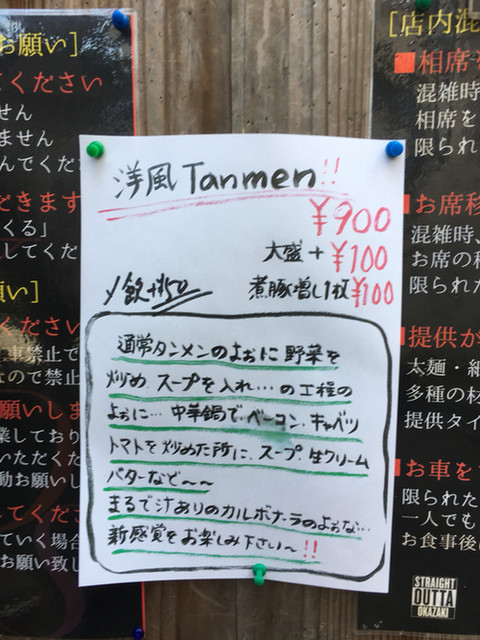 洋風Tanmen!!
¥900
大盛+¥100
煮豚増し1枚¥100
〆飯+150
通常タンメンのように野菜を
炒め スープを入れ…の工程の
ように… 中華鍋で、ベーコン、キャベツ
トマトを炒めた所に、スープ、生クリーム
バターなど〜〜
まるで汁ありのカルボナーラのような…
新感覚をお楽しみ下さい〜!!
お願い]
てください
せん
ません
んでくだ
できます
くる」
してくだ
い]
ください
車禁止で
なので禁止
願いしま
業してお
いただく
動お願い
くださ
ていく場合
お願い致し
[店内混
■相席を
混雑時、
相席を
限られた
■お席移
混雑時、
お席の移
限られた
■提供が
太麺・細
多種の材
提供タイ
■お車を
限られた
一人でも
お食事後
STRAIGHT
OUTTA
OKAZAKI